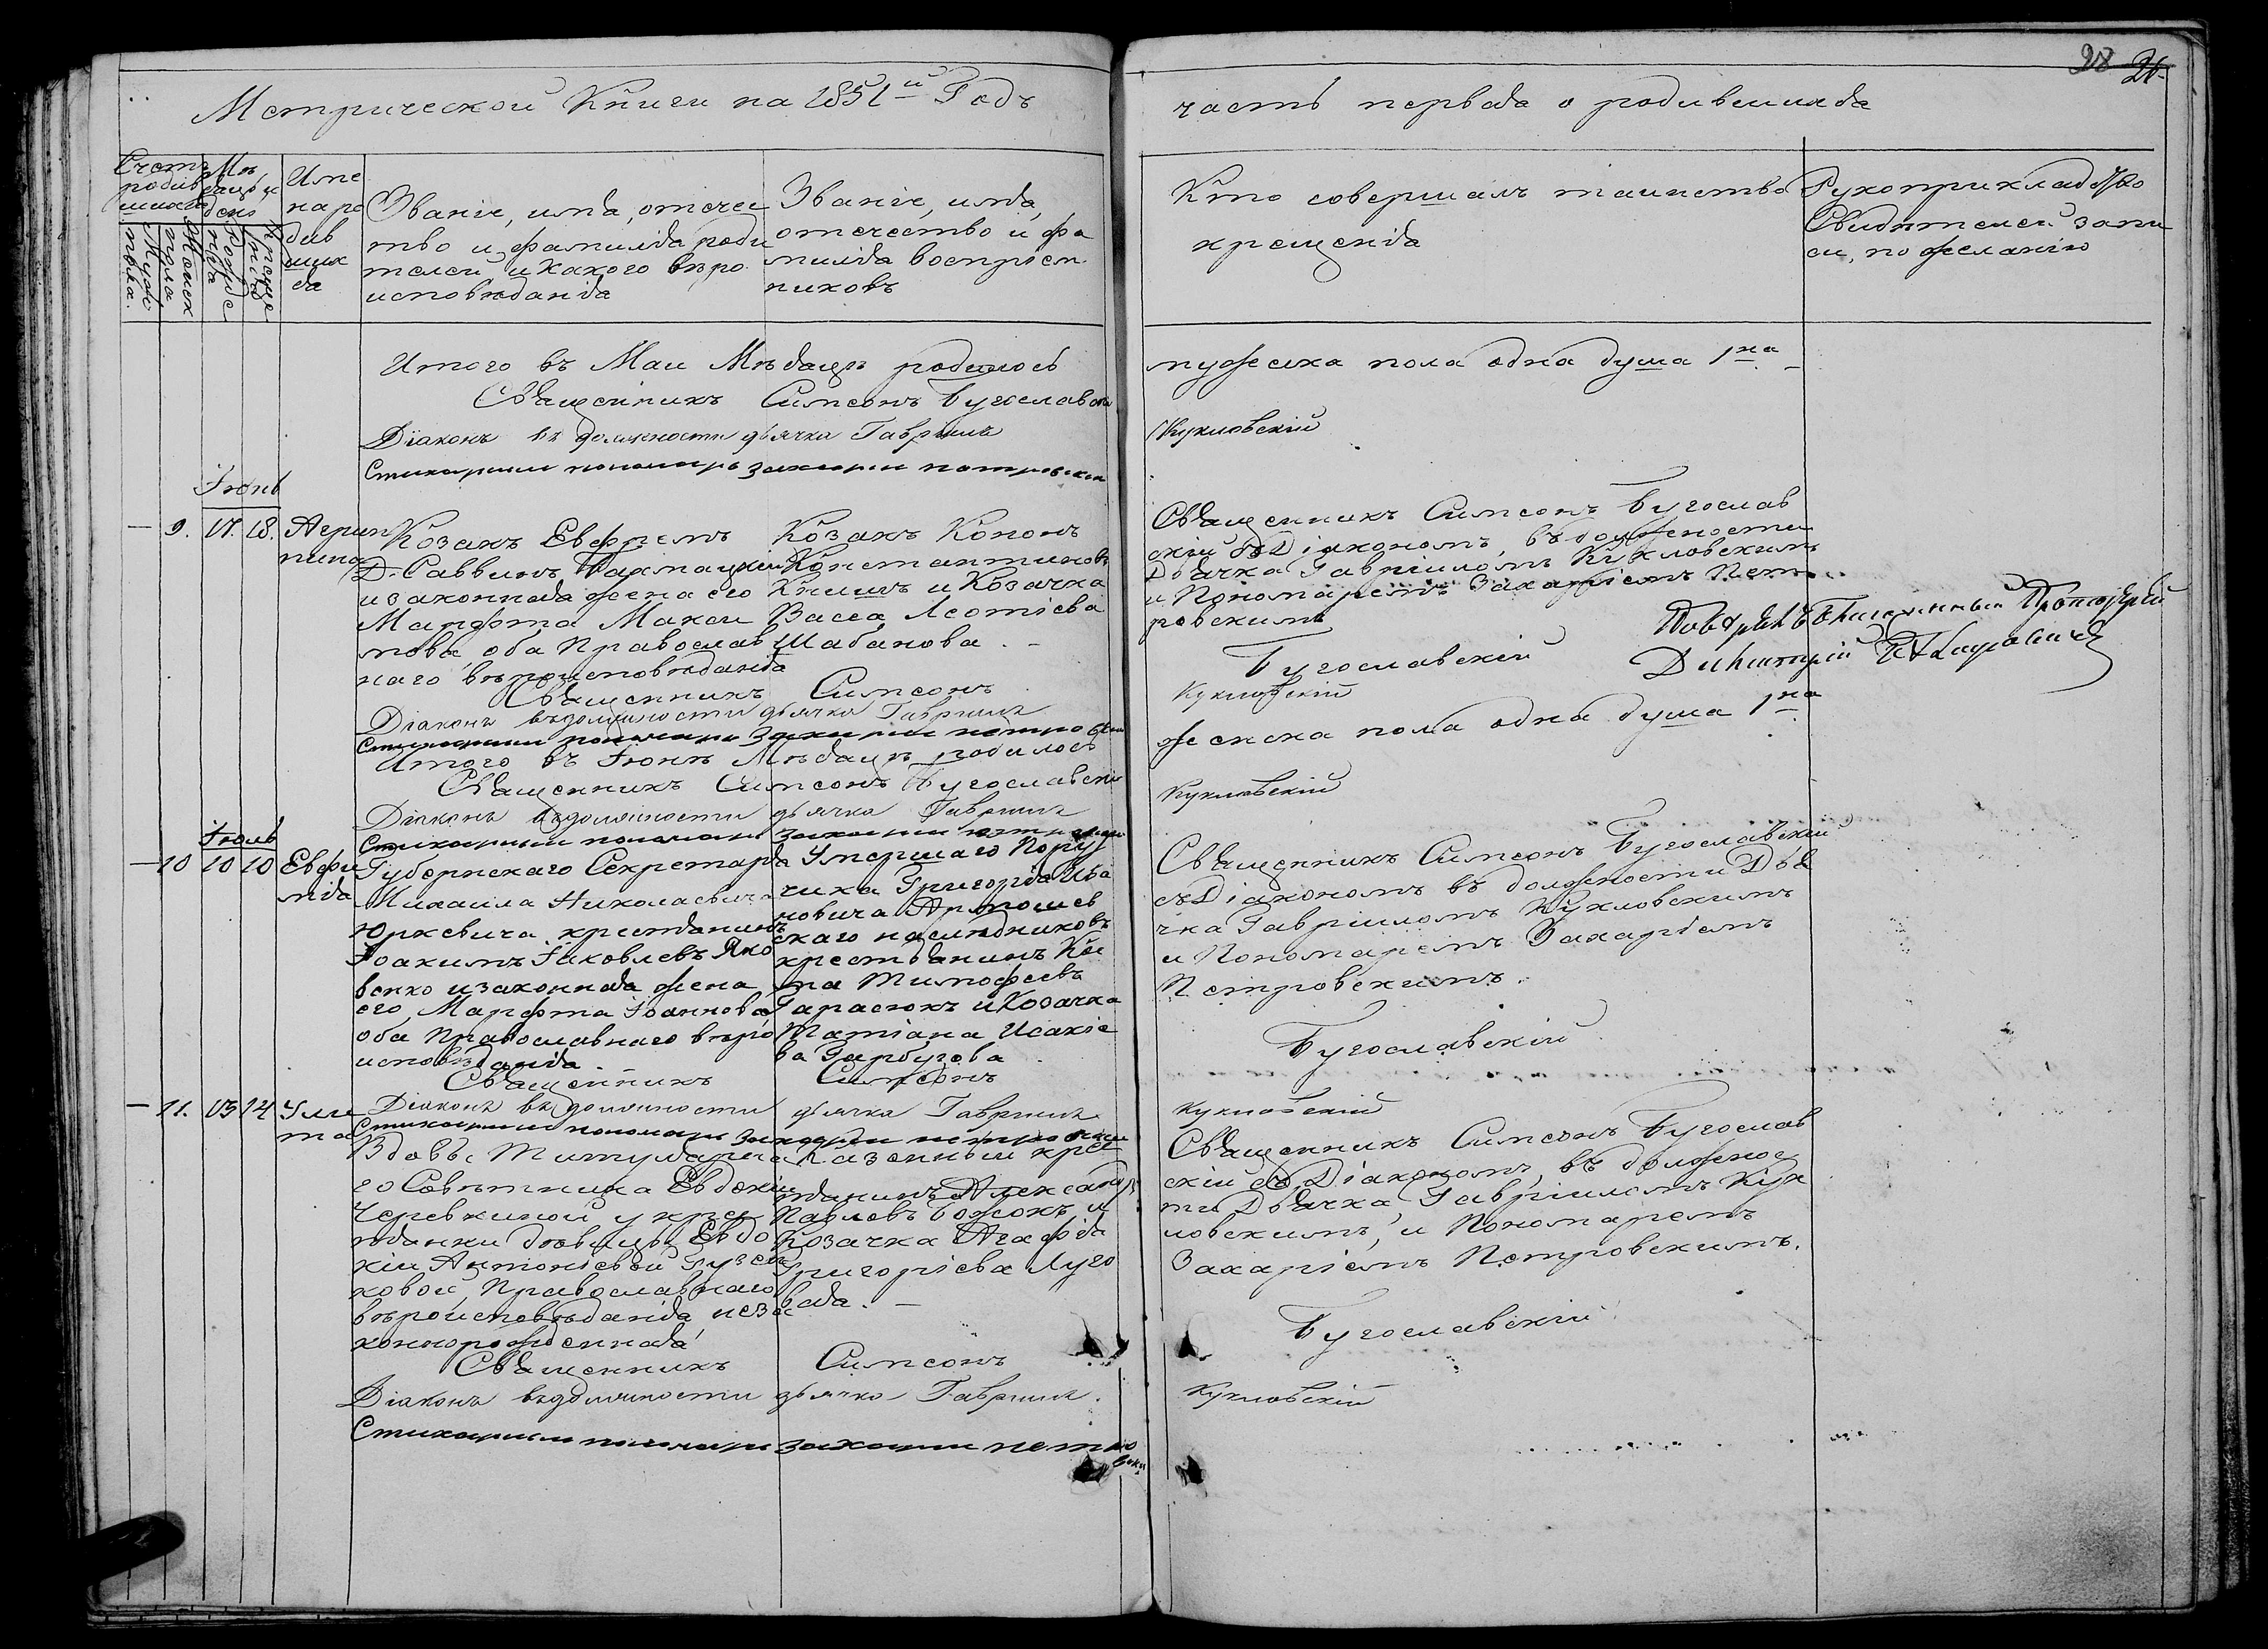 28 21
Метрической Книги на 1851й Годъ
часть первая о родившихся
Счетъ родившихся
Мужеска пола.
Женска пола
Мѣсяцъ и день
Рожденія
Крещенія
Имена родившихся
Званіе, имя, отечес
тво и фамилія роди
телей и какого вѣро
исповѣданія
Званіе, имя,
отечество и фа
милія воспріем
никовъ
Кто совершалъ таинство
крещенія
Рукоприкладство
Свидѣтелей запи
си, по желанію
Итого въ Маи Мѣсяцѣ родилось
мужеска пола одна душа 1на
Священникъ Симеонъ Бугославскій
Діаконъ въ должности дьячка Гавріилъ
Кукловскій
Стихарный пономарь Захарій Петровскій
Іюнь
9. 17. 18. Агрип
пина
Козакъ Евфремъ
Саввинъ Бахмацкій
и законная жена его
Марфта Макси
мова, оба Православ
наго вѣроисповѣданія
Козакъ Кононъ
Константиновъ
Книшъ и Козачка
Васса Леонтіева
Шабанова. –
Священникъ Симеонъ Бугослав
скій съ Діакономъ, въ должности
Дьячка Гавріиломъ Кукловскимъ
и Пономаремъ Захаріемъ Пет
ровскимъ
Священникъ Симеонъ
Бугославскій
Діаконъ въ должности дьячка Гавріилъ
Кукловскій
Стихарный пономарь Захарій Петровскій
Протоіерей
Димитрій
Итого въ Іюнѣ Мѣсяцѣ родилось
женска пола одна душа 1на
Священникъ Симеонъ Бугославскій
Діаконъ въ должности дьячка Гавріилъ
Кукловскій
Стихарный пономарь Захарій Петровскій
Іюль
10 10 10 Евфи
мія
Губернскаго Секретаря
Михаила Николаевича
Юркевича крестьянинъ
Іоакимъ Іаковлевъ Яко
венко и законная жена
его, Марфта Іоаннова
оба Православнаго вѣро
исповѣданія.
Умершаго Пору
чика Григорія Ива
новича Артюшев
скаго наслѣдниковъ
крестьянинъ Кос
ма Тимофеевъ
Гарасюкъ и Козачка
Татіана Исакіе
ва Гарбузова
Священникъ Симеонъ Бугославскій
съ Діакономъ въ должности Дья
чка Гавріиломъ Кукловскимъ
и Пономаремъ Захаріемъ
Петровскимъ.
Священникъ Симеонъ
Бугославскій
Діаконъ въ должности дьячка Гавріилъ
Кукловскій
Стихарный пономарь Захарій Петровскій
11. 13 14 Ули
та
Вдовы Титулярна
го Совѣтника Евдокіи
Черевкиной у крес
тьянки дѣвицы Евдо
кіи Антоніевой
Православнаго
вѣроисповѣданія неза
коннорожденная
Казенный крес
тьянинъ Александръ
Павловъ Божокъ и
Козачка Агафія
Григоріева Луго
вая. –
Священникъ Симеонъ Бугослав
скій съ Діакономъ, въ должнос
ти Дьячка, Гавріиломъ Кук
ловскимъ, и Пономаремъ
Захаріемъ Петровскимъ.
Священникъ Симеонъ
Бугославскій
Діаконъ въ должности дьячка Гавріилъ.
Кукловскій
Стихарный пономарь Захарій Петровскій